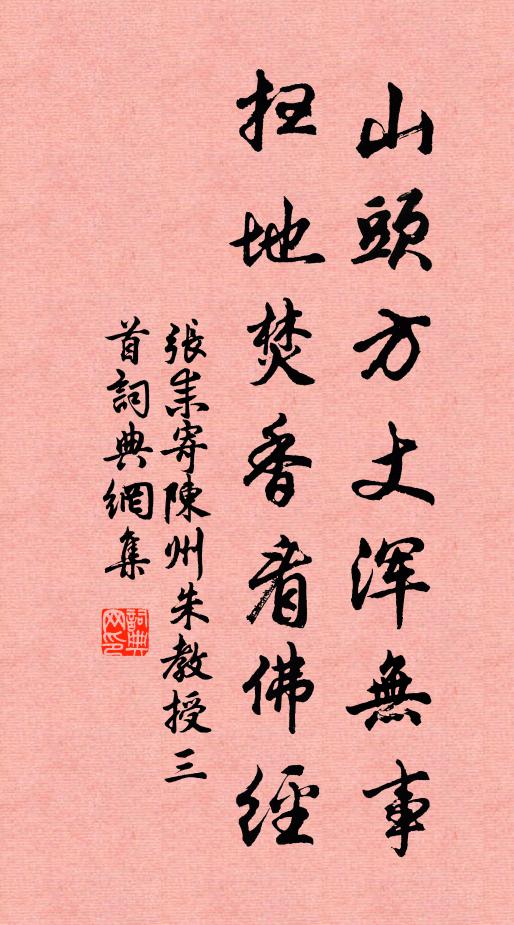 山頭方丈渾無事
掃地焚香看佛經
張耒寄陳州朱教授三
首詞典網集
詞典
網印